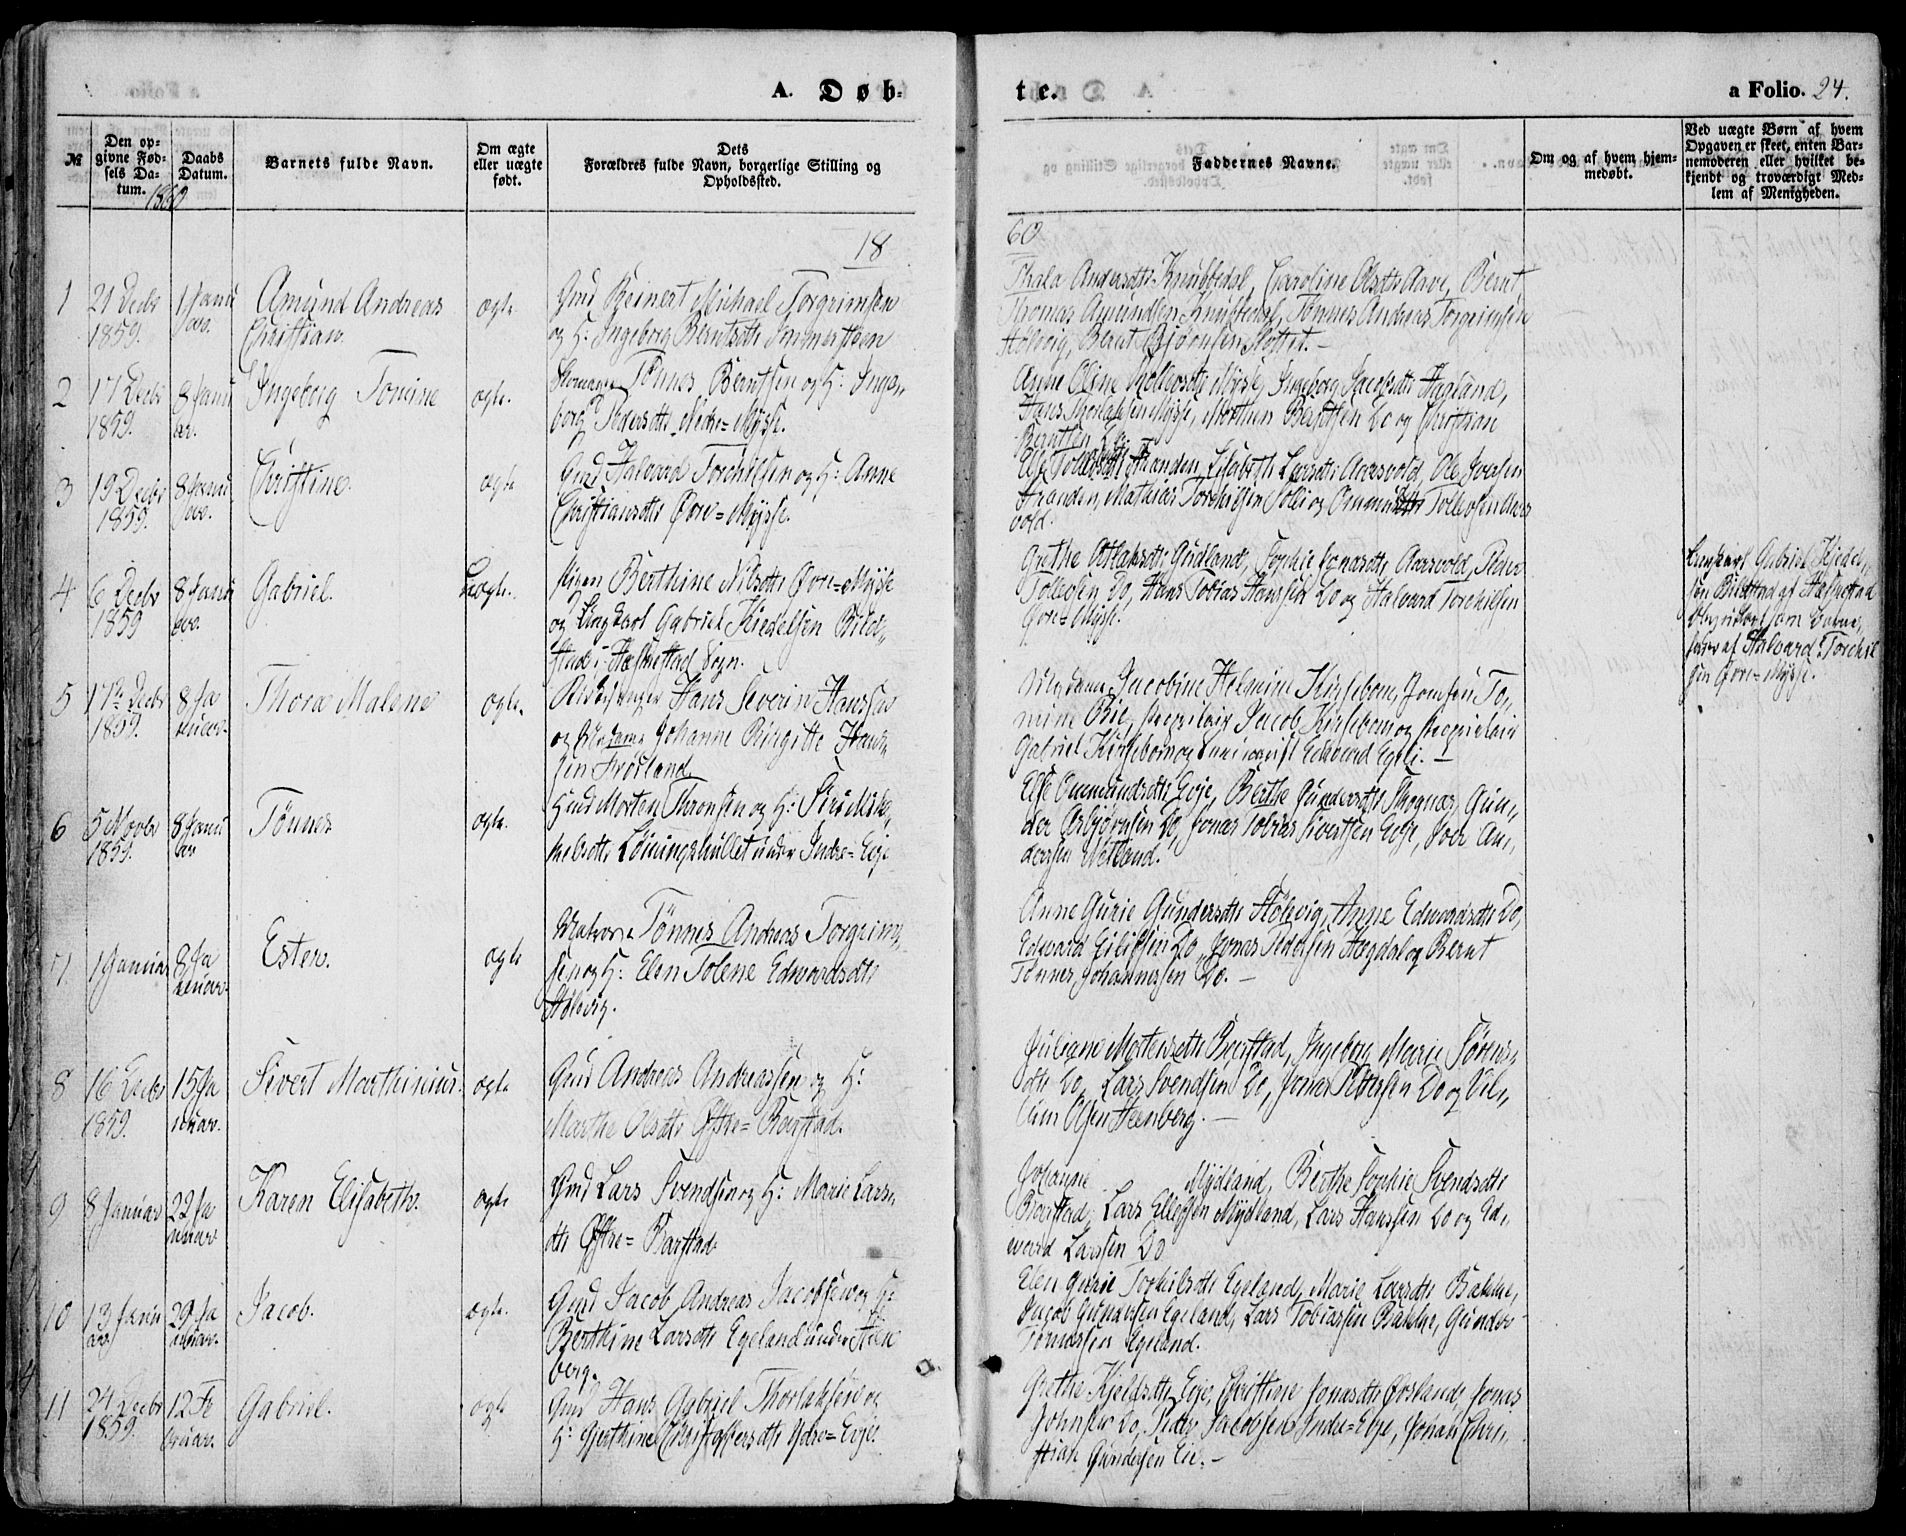 A. Døb-
te.
a Folio. 24.
№
Den op-
givne Fød-
sels Da-
tum.
1860
Daabs
Datum.
Barnets fulde Navn.
Om ægte
eller uægte
født.
Dets
Forældres fulde Navn, borgerlige Stilling og
Opholdssted.
Faddernes Navne.
Om og af hvem hjem-
medøbt.
Ved uægte Børn af hvem
Opgaven er skeet, enten Bar-
nemoderen eller hvilket be-
kjendt og troværdigt Med-
lem af Menigheden.
18
60
1
21 Decbr
1859.
1 Janu
Amund Andreas
Christian.
ægte
Gmd Reinert Michael Torgrimsen
og H: Ingeborg Berntsdtr
Andersdtr Knubbedal, Caroline Olsdtr Aave, Bernt
Thomas Amundsen Knubbedal, Tønnes Andreas Torgrimsen
Stølevig, Bernt Bjørnsen Slottet. -
2
17 Decbr
1859.
8 Janu
ar.
Ingeborg Tomine
ægte.
Tønnes Berntsen og H: Inge,,
borg Pedersdtr Nedre=Mysse.
Anne Oline Mysse, Ingeborg Jacobsdtr Haeland,
Hans Mysse, Berntsen Do og Christian
Berntsen Do.
3
19 Decbr
1859.
8 Janu
Christine.
ægte
Gmd Halvard Torchilsen og H: Anne
Christiansdtr Øvre=Mysse.
Stranden, Elisabeth Larsdtr Aarsvold, Ole
Stranden, Mathias Torchilsen og Tollevsen Aars
vold.
4
6 Decbr
1859
8 Janu
Gabriel.
Uægte.
Pigen Berthine Nilsdtr Øvre=Mysse
og Ungkarl Gabriel Kiedelsen Bilst,,
stad i Hæskestad Sogn.
Grethe Aslaksdtr Gudland, Sophie Jonasdtr Aarsvold, Peder
Tollefsen Do, Hans Tobias Hanssen Do og Halvard Torchilsen
Øvre=Mysse.
Ungkarl Gabriel Kiedel,,
sen Bilstad af Hæskestad
som Barne,,
fader af Halvard Torchil
sen Øvre=Mysse.
5
17 Decbr
1859.
8 Ja
nuar.
Thora Malene
ægte.
Hans Severin Hanssen
og Madame Johanne Birgitte Hans,,
sen Frøsland
Madame Jacobine Helmine Kirsebom, Jomfru To,,
mine Bie, Proprietair Jacob Kirsebom og Proprietair
Gabriel Kirsebom og Edvard Egeli. -
6
5 Novbr
1859.
8 Janu
ar
Tønnes
ægte.
Gmd Morten Thronsen og H: Siri Mik,,
kelsdtr under Indre=Evje
Else Ommundsdtr Evje, Berthe Gundersdtr Skognæs, Gun,,
der Asbjørnsen Do, Jonas Tobias Sivertsen Evje, Peder An,,
dersen Netland.
7
1 Januar
8 Ja
nuar.
Ester.
ægte
Matros Tønnes Andreas Torgrim,,
sen og H: Elen Tolene Edwardsdtr
Stølevig.
Anne Gurie Gundersdtr Stølevig, Anne Edwardsdtr Do,
Edward Do, Jonas Pedersen Hægdal og Bernt
Tønnes Johannessen Do. -
8
16 Decbr
1859.
15 Ja
nuar.
Sivert Marthinius.
ægte
Gmd Andreas Andreassen og H:
Marthe Olsdtr Østre=Barstad.
Juliane Mortensdtr Barstad, Ingeborg Marie Sørens,,
dtr Do, Lars Svendsen Do, Jonas Pettersen Do og Vil,,
lum Olsen Steenberg. -
9
8 Januar
22 Ja
nuar
Karen Elisabeth.
ægte
Gmd Lars Svendsen og H: Marie Lars,,
dtr Østre=Barstad.
Johanne Mydland, Berthe Sophie Svendsdtr
Barstad, Lars Ellefsen Mydland, Lars Hanssen Do og Ed,,
ward Larssen Do
10
13 Janu
ar
29 Ja
nuar.
Jacob.
ægte.
Gmd Jacob Andreas Jacobsen og H:
Berthine Larsdtr Egeland under Steen
berg.
Elen Gurie Torkilsdtr Egeland, Marie Larsdtr Bakke,
Jacob Gundersen Egeland, Lars Tobiassen Bakke, Gunder
Tønnessen Egeland.
11
24 Decbr
1859.
12 Fe
bruar.
Gabriel.
ægte
Gmd Hans Gabriel Thorlaksen og
H: Gjerthine Christophersdtr Ydre=Evje.
Grethe Kjeldsdtr Evje, Christine Jonasdtr Ørsland, Jonas
Johnsen Do, Peder Jacobsen Indre=Evje, Johan Chri,,
stian Gundersen Eie. -